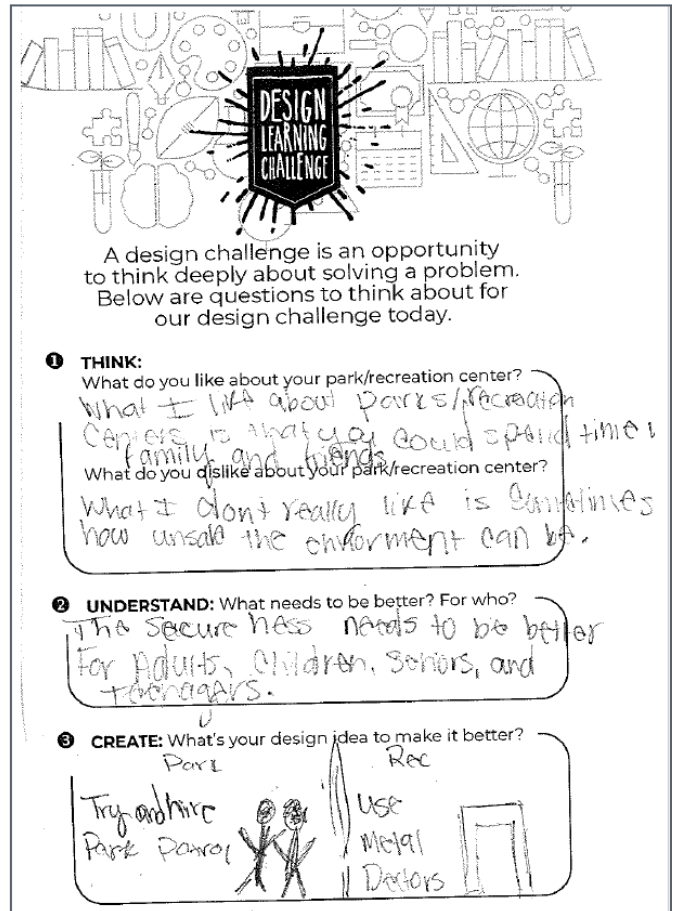 DESIGN
LEARNING
CHALLENGE
A design challenge is an opportunity
to think deeply about solving a problem.
Below are questions to think about for
our design challenge today.
1 THINK:
What do you like about your park/recreation center?
What I like about parks/recreation
Centers is that you could spend time
family and friends
What do you dislike about your park/recreation center?
What I dont really like is Sometimes
how unsafe the enviorment can be.
2 UNDERSTAND: What needs to be better? For who?
The secureness needs to be better
For Adults, Children, Seniors, and
teenagers.
3 CREATE: What's your design idea to make it better?
Park
Try and hire
Park Patrol
Rec
Use
Metal
Dectors